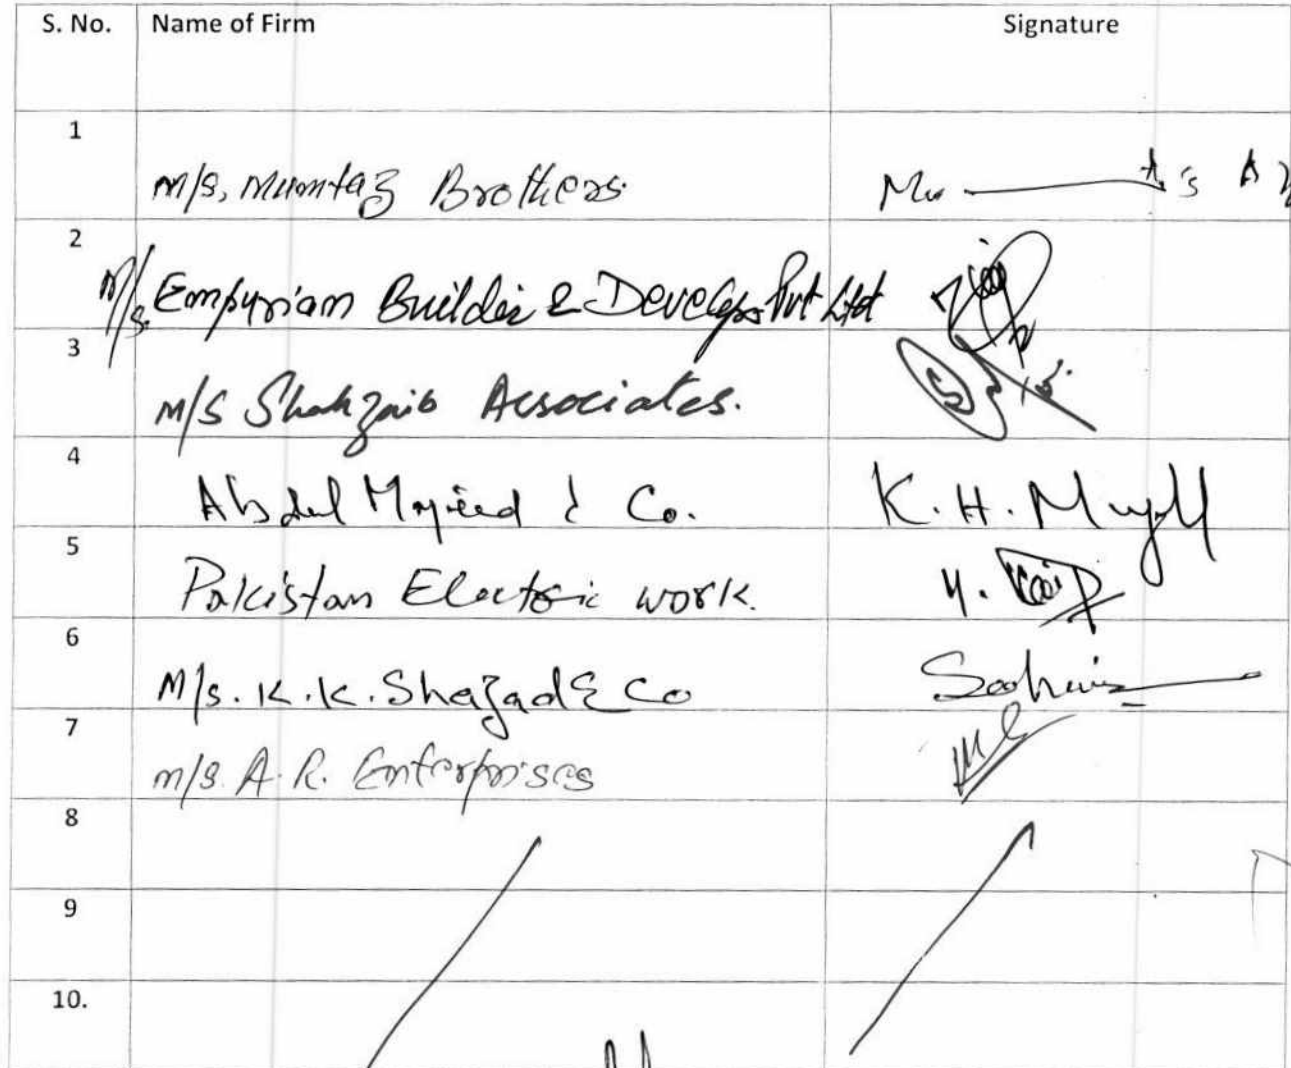 S. No. Name of Firm Signature
1
M/s, Mumtaz Brothers
2
M/s. Empyriam Builder & Develops Pvt Ltd
3
M/S Shahzaib Associates.
4
Abdul Majeed & Co. K. H.
5
Pakistan Electric work. Y.
6
M/s. K.K. Shazad & Co
7
M/s. A.R. Enterprises
8
9
10.